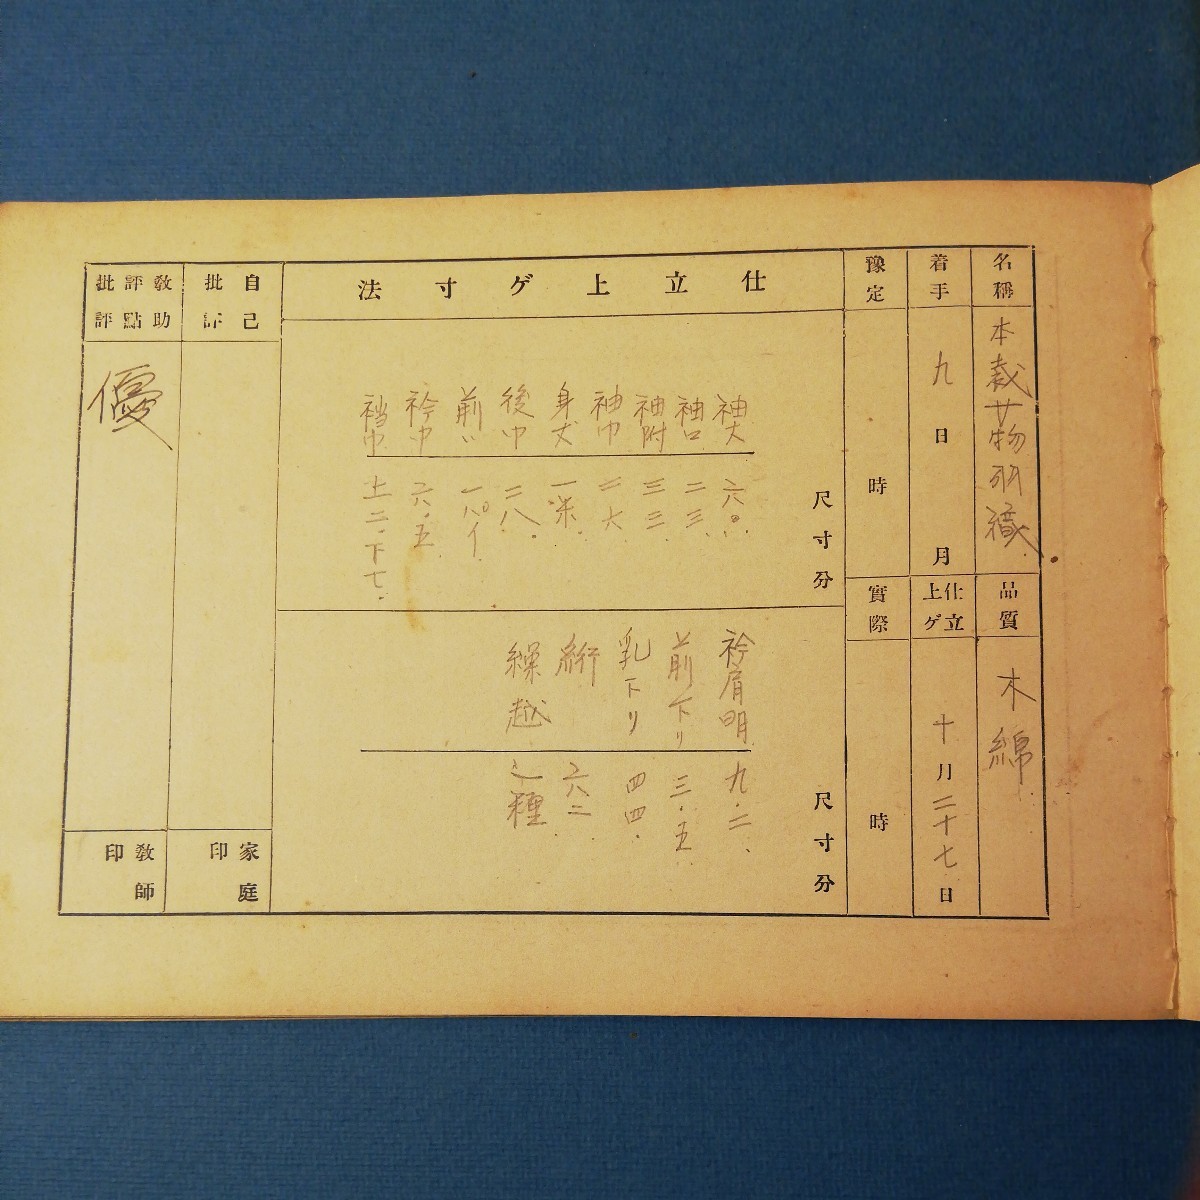 名稱
本裁女物羽織
品質
木綿
着手
九日
月
仕立上ゲ
十月二十七日
豫定
時
實際
時
仕立上ゲ寸法
尺寸分
袖丈
六〇.
袖口
二三.
袖附
三三
袖巾
二六
身丈
後巾
二八.
前〃
衿巾
六.五
襠巾
上二.下七.
尺寸分
衿肩明
九.二
前下り
三.五
乳下り
四四.
裄
六二
繰越
自己批評
家庭印
教助評點批評
優
教師印